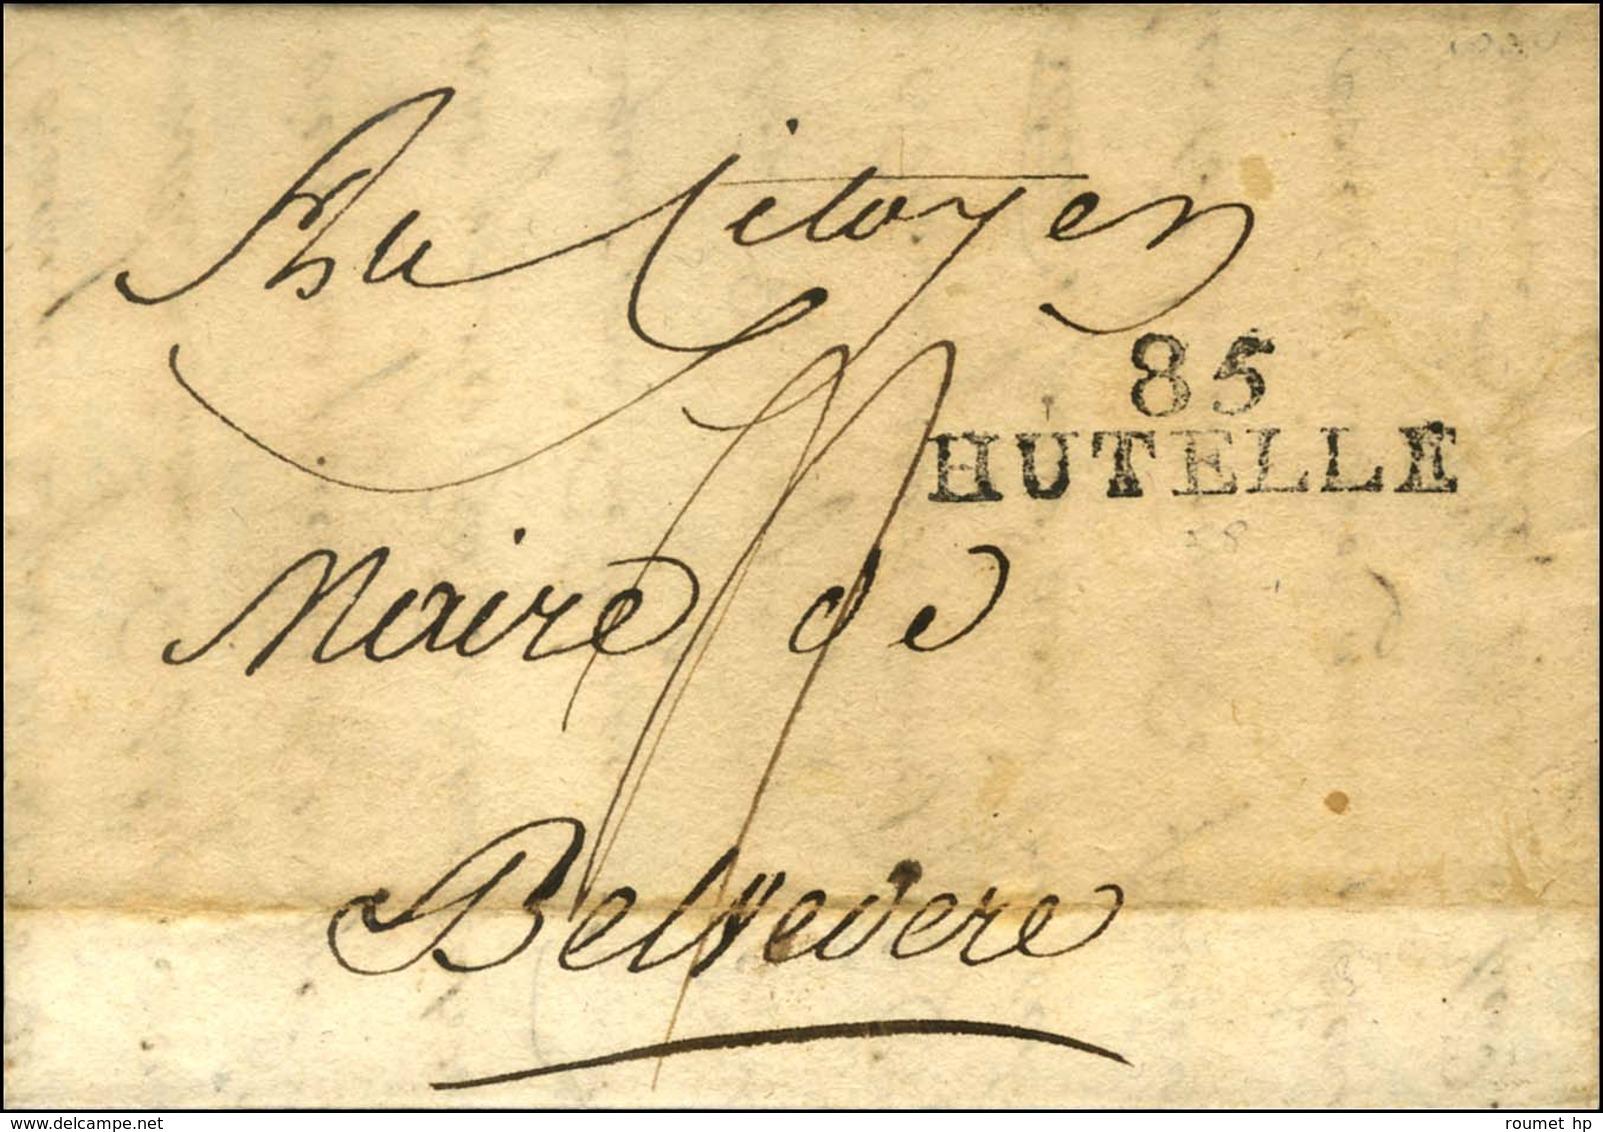 Au Citoyen
85
HUTELLE
Maire de
Belvedere
delcampe.net
roumet hp